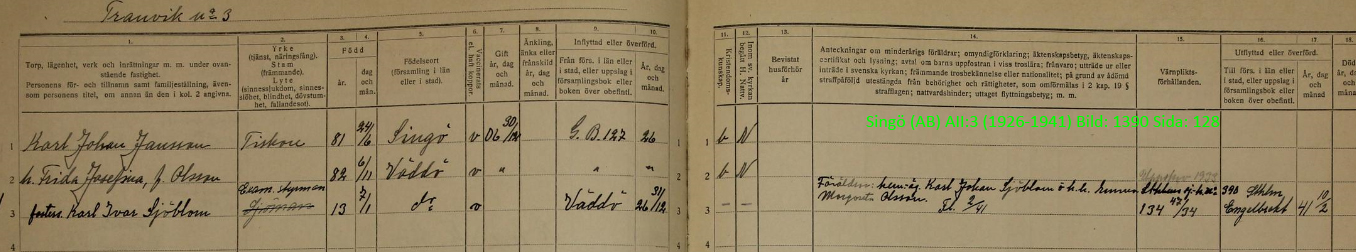 Tranvik no 3
1.
Torp, lägenhet, verk och inrättningar m. m. under ovanstående fastighet.
Personens för- och tillnamn samt familjeställning, ävensom personens titel, om annan än den i kol. 2 angivna.
2.
Yrke
(tjänst, näringsfång).
Stam
(främmande).
Lyte
(sinnessjukdom, sinnesslöhet, blindhet, dövstumhet, fallandesot).
3. 4.
Född
år
dag och mån.
5.
Födelseort
(församling i län eller i stad).
6.
Vaccinerad el. haft koppor.
7.
Gift år, dag och månad.
8.
Änkling, änka eller frånskild år, dag och månad.
Inflyttad eller överförd.
9.
Från förs. i län eller i stad, eller uppslag i församlingsbok eller boken över obefintl.
10.
År, dag och månad.
11.
Kristendomskunskap.
12.
13.
Bevistat husförhör år
14.
Anteckningar om minderårigs föräldrar; omyndigförklaring; äktenskapsbetyg, äktenskapscertifikat och lysning; avtal om barns uppfostran i viss troslära; frånvaro; utträde ur eller inträde i svenska kyrkan; främmande trosbekännelse eller nationalitet; på grund av ådömd straffpåföljd utestängda från behörighet och rättigheter, som omförmälas i 2 kap. 19 § strafflagen; nattvardshinder; uttaget flyttningsbetyg; m. m.
15.
Värnpliktsförhållanden.
Utflyttad eller överförd.
16.
Till förs. i län eller i stad, eller uppslag i församlingsbok eller boken över obefintl.
17.
År, dag och månad
18
Singö (AB) AII:3 (1926-1941) Bild: 1390 Sida: 128
1 Karl Johan Jansson Fiskare 81 24/6 Singö v 06 30/12 G. B. 127 26 1 b N
2 h. Frida Josefina, f. Olsson 82 6/11 Väddö v " " " 2 b N
Exam. styrman
3 fosters. Karl Ivar Sjöblom Sjöman 13 7/1 do v Väddö 26 31/12 3 — —
Föräldrar: hem.äg. Karl Johan Sjöblom o. h. h.
Margareta Olsson.
134 47/34
390 Sthlm
Engelbrekt 41 10/2
4 4